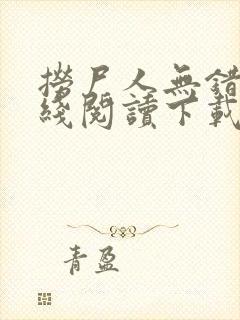 撈尸人無錯
綫閱讀下載
青盈